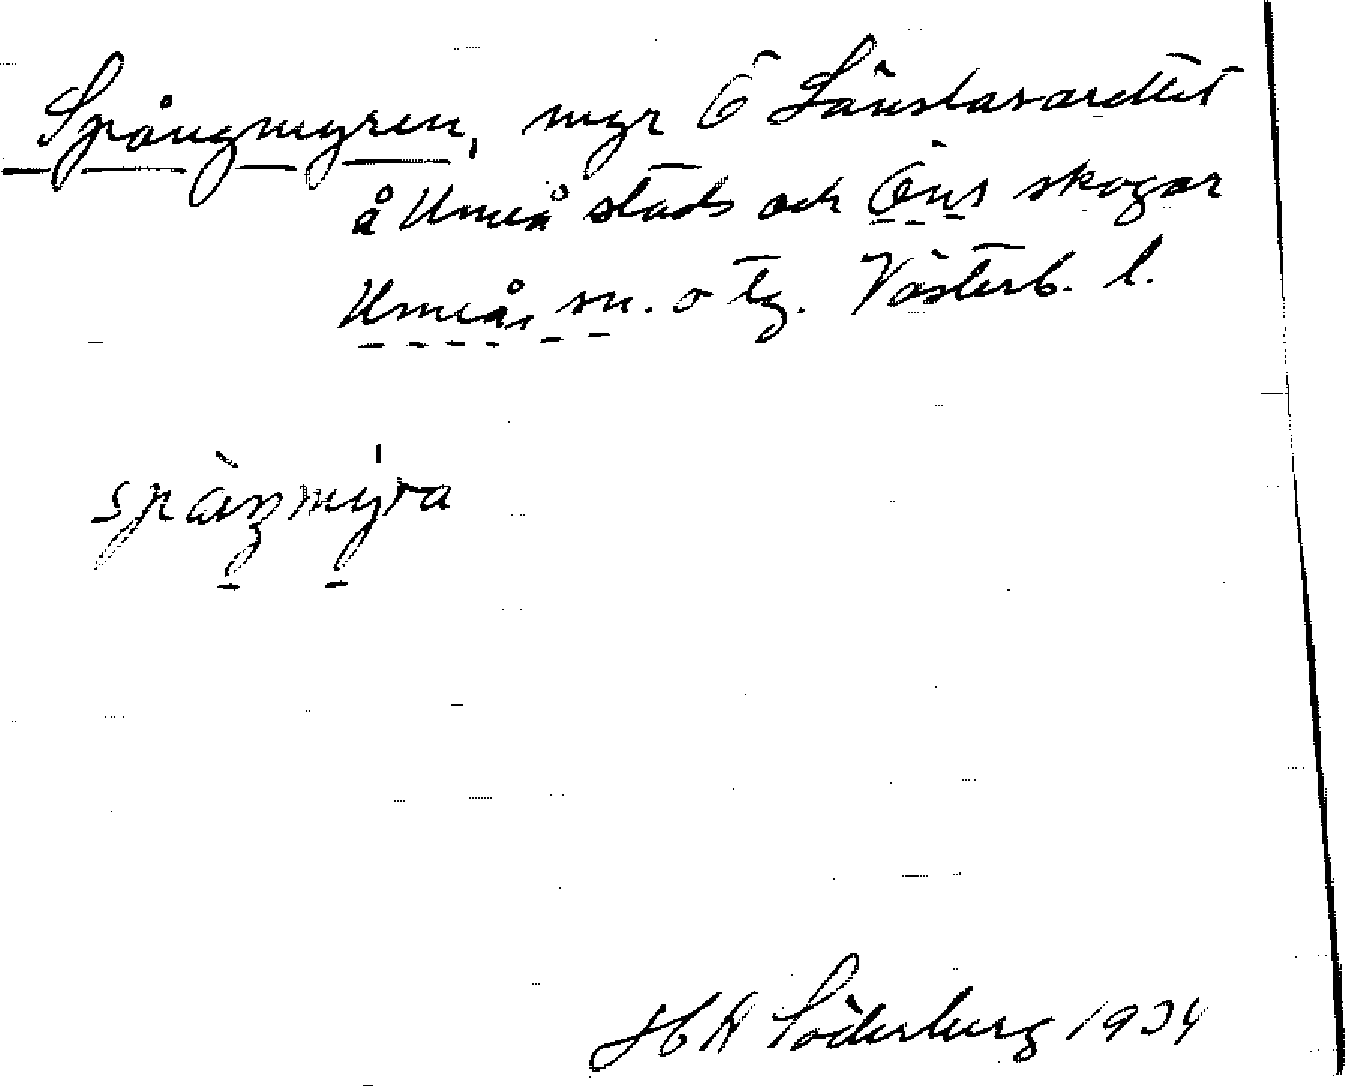 Spångmyren, myr Ö
å Umeå stads och Öns skogar
Umeå sn. o tg. Västerb. l.
spåŋmyra
H A Söderberg 1934